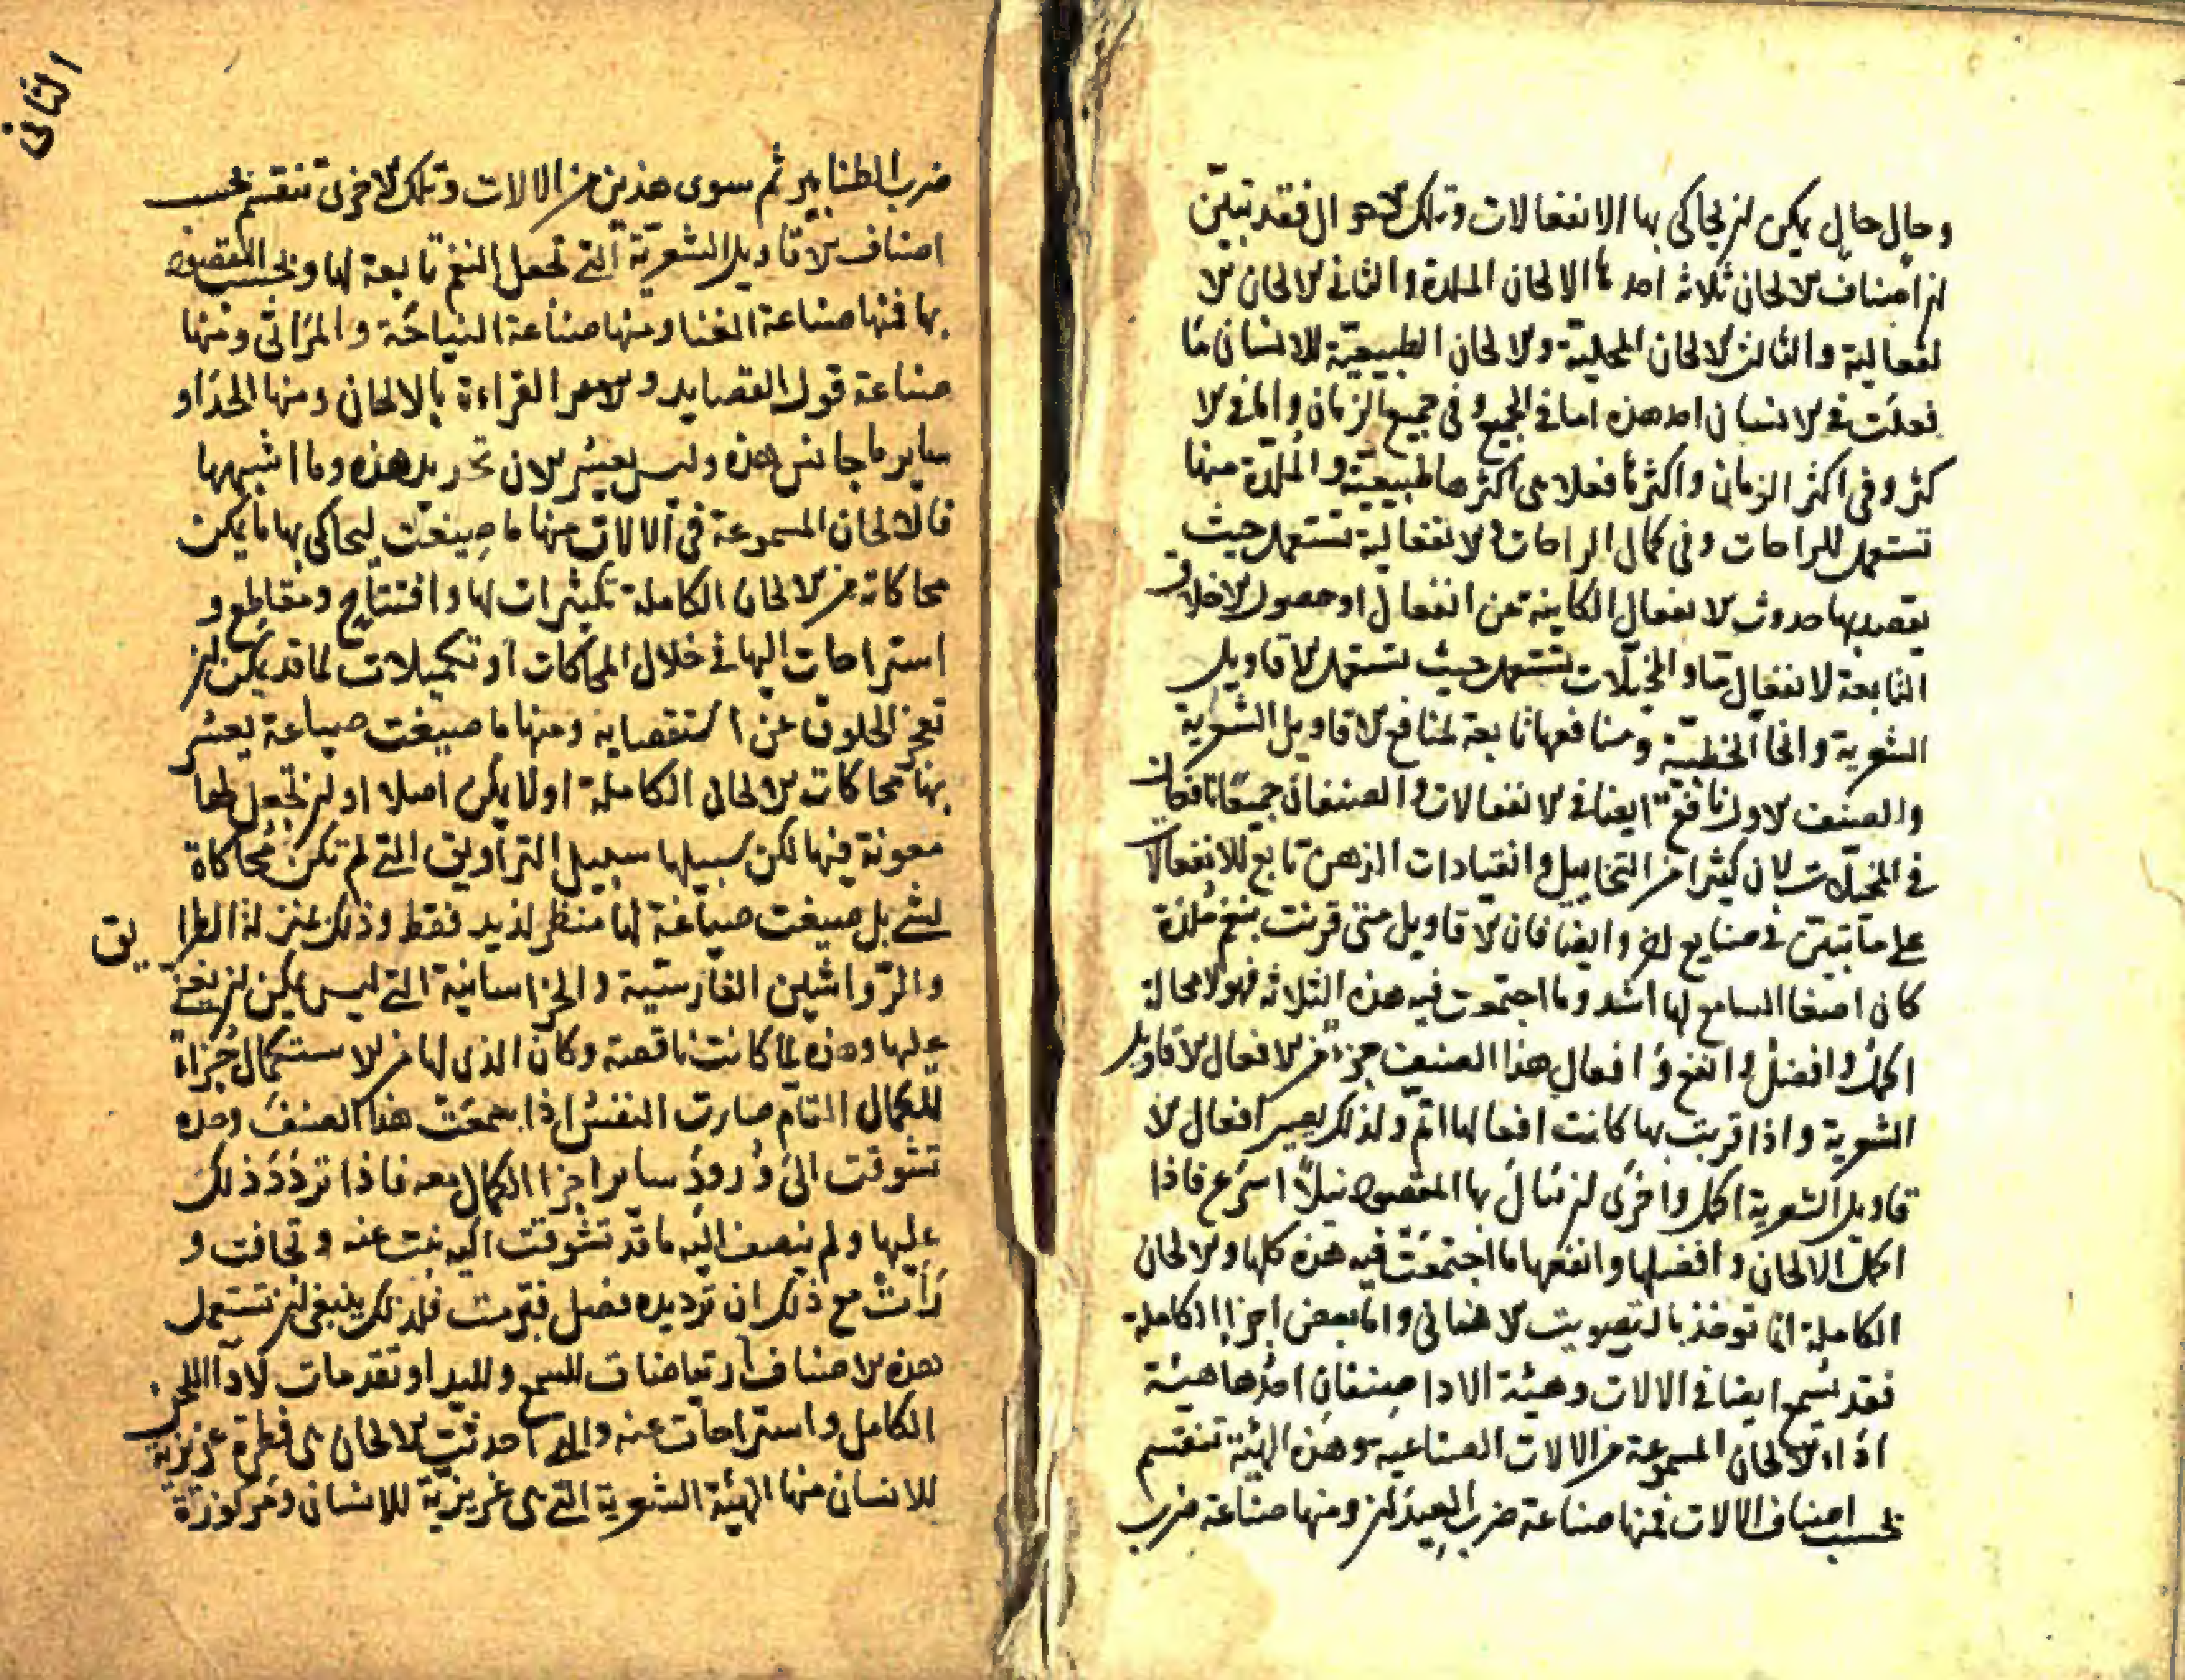 وحال حال يمكن ان يحاكى بها الانفعالات وتلك الاحوال فقد تبيّن
ان اصناف الالحان ثلاثة احدها الالحان الملذة والثانى الالحان الا
نفعالية والثالث الالحان المخيلة والالحان الطبيعيّة للانسان ما
فعلت فى الانسان احد هذه اما فى الجميع وفى جميع الزمان واما فى الا
كثر وفى اكثر الزمان واكثرها فعلا هى اكثرها طبيعيّة والملذة منها
تستعمل للراحات وفى كمال الراحات والانفعالية تستعمل حيث
يقصد بها حدوث الافعال الكاينة عن انفعال او حصول الاخلاق
التابعة لانفعال ما والمخيلات تستعمل حيث تستعمل الاقاويل
الشعرية وانحا الخطبيّة ومنافعها تابعة لمنافع الاقاويل الشعرية
والصنف الاول نافع ايضا فى الانفعالات والصنفان جميعا نافعان
فى المخيلات لان كثيرا من التخاييل وانقيادات الذهن تابع للانفعالا
على ما تبيّن فى صنايع اخر وايضا فان الاقاويل متى قرنت بنغم ملذة
كان اصغا السامع لها اشد وما اجتمعت فيه هذه الثلاثة فهو لا محالة
اكمل وافضل وانفع وافعال هذا الصنف جزء من الافعال الاقاويل
الشعرية واذا قرنت بها كانت افعالها اتم ولذلك يصير افعال الا
قاويل الشعرية اكمل واخرى ان تنال بها المقصود نيلا اسرع فاذا
اكمل الالحان وافضلها وانفعها ما اجتمعت فيه هذه كلها والالحان
الكاملة انما توخذ بالتصويت الانسانى واما بعض اجزا الكاملة
فقد تسمع ايضا فى الالات وهيئة الادا صنفان احدها هيئة
اداء الالحان المسموعة من الالات الصناعية وهذه الهيئة تنقسم
بحسب اصناف الالات فمنها صناعة ضرب العيدان ومنها صناعة ضرب
الثانى
ضرب الطنابير ثم سوى هذين من الالات وتلك الاخرى تنقسم بحسب
اصناف الاقاويل الشعريّة التى تجعل النغم تابعة لها وبحسب المقصود
بها فمنها صناعة الغنا ومنها صناعة النياحة والمراثى ومنها
صناعة قول القصايد و القراءة بالالحان ومنها الحدا و
ساير ما جانس هذه وليس يعسر الان تحديد هذه وما اشبهها
فالالحان المسموعة فى الالات منها ما صيغت ليحاكى بها ما يمكن
محاكاته من الالحان الكاملة تكثيرات لها وافتتاح ومقاطع و
استراحات اليها فى خلال المحاكات او تكميلات لما قد يمكن ان
تعجز الحلوق عن استقصايه ومنها ما صيغت صياغة يعسر
بها محاكات الالحان الكاملة اولا يمكن اصلا او ان تجعل لها
معونة فيها لكن سبيلها سبيل التزاويق التى لم تكن محاكاة
لشى بل صيغت صياغة لها منظر لذيد فقط وذلك بمنزلة الطرايق
والرّواشين الفارسيّة والخراسانية التى ليس يمكن ان يغنى
عليها وهذه لما كانت ناقصة وكان الذى لها من الاستكمال جزاء
للكمال التام صارت النفس اذا سمعت هذا الصنف وحده
تشوقت الى ورود ساير اجزا الكمال معه فاذا تردد ذلك
عليها ولم ينضف اليه ما قد تشوقت اليه نبت عنه وتجافت و
رأت مع ذلك ان ترديده فضل فتبرمت فلذلك ينبغى ان تستعمل
هذه الاصناف ارتياضات للسمع ولليد او تقدمات لاداء اللحن
الكامل واستراحات عنه والتى احدثت الالحان هى فطرة غريزية
للانسان منها الهيئة الشعرية التى هى غريزية للانسان ومركوزة